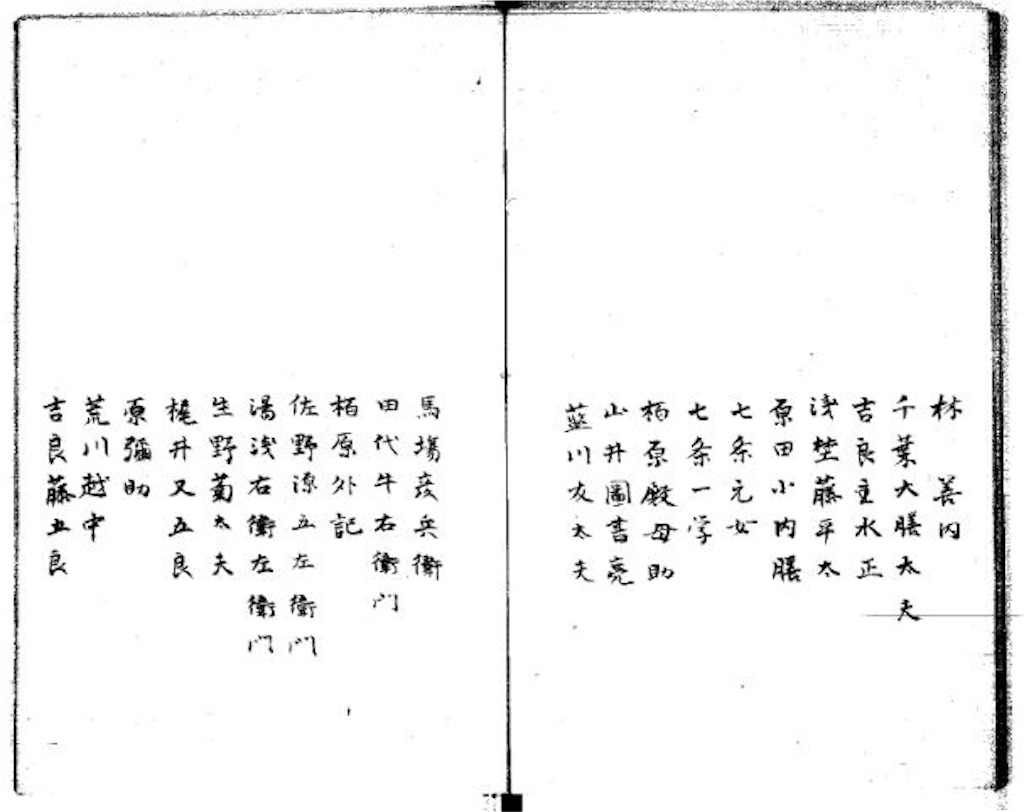 林 善内
千葉大膳太夫
吉良主水正
浅埜藤平太
原田小内膳
七条元女
七条一学
栢原殿母助
山井圖書亮
藍川友太夫
馬場彦兵衛
田代牛右衛門
栢原外記
佐野源五左衛門
湯浅右衛左衛門
生野菊太夫
梶井又五良
原彌助
荒川越中
吉良藤五良